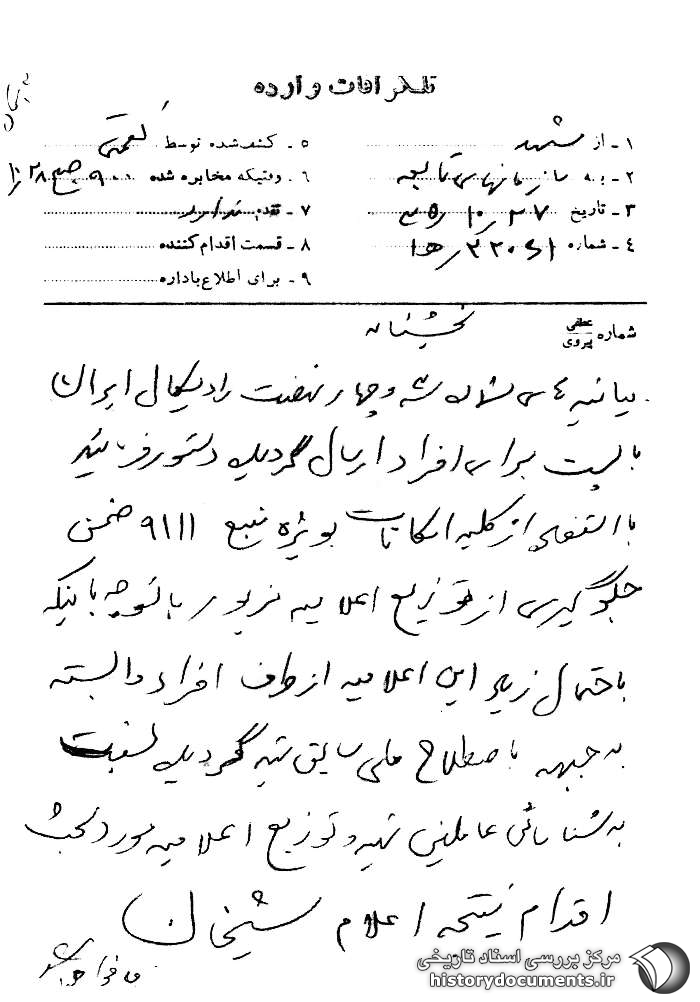 تلگرافات وارده
۱ - از مشهد
۲ - به سازمانهای تابعه
۳ - تاریخ ۲۷ /۱۰/
۴ - شماره
۵ - کشف شده توسط
۶ - وقتیکه مخابره شده ۹۰۰ صبح ۲۸ /۱۰
۷ - تقدم
۸ - قسمت اقدام کننده
۹ - برای اطلاع باداره
شماره عطفی پیروی
بیانیه ای شماره سه و چهار نهضت رادیکال ایران
با پست برای افراد ارسال گردیده دستور فرمائید
با استفاده از کلیه امکانات بویژه منبع ۹۱۱۱ ضمن
جلوگیری از توزیع اعلامیه مزبور با توجه باینکه
باحتمال زیاد این اعلامیه از طرف افراد وابسته
به جبهه باصطلاح ملی سابق تهیه گردیده نسبت
به شناسائی عاملین تهیه و توزیع اعلامیه مورد بحث
اقدام نتیجه اعلام شیخان
مرکز بررسی اسناد تاریخی
historydocuments.ir